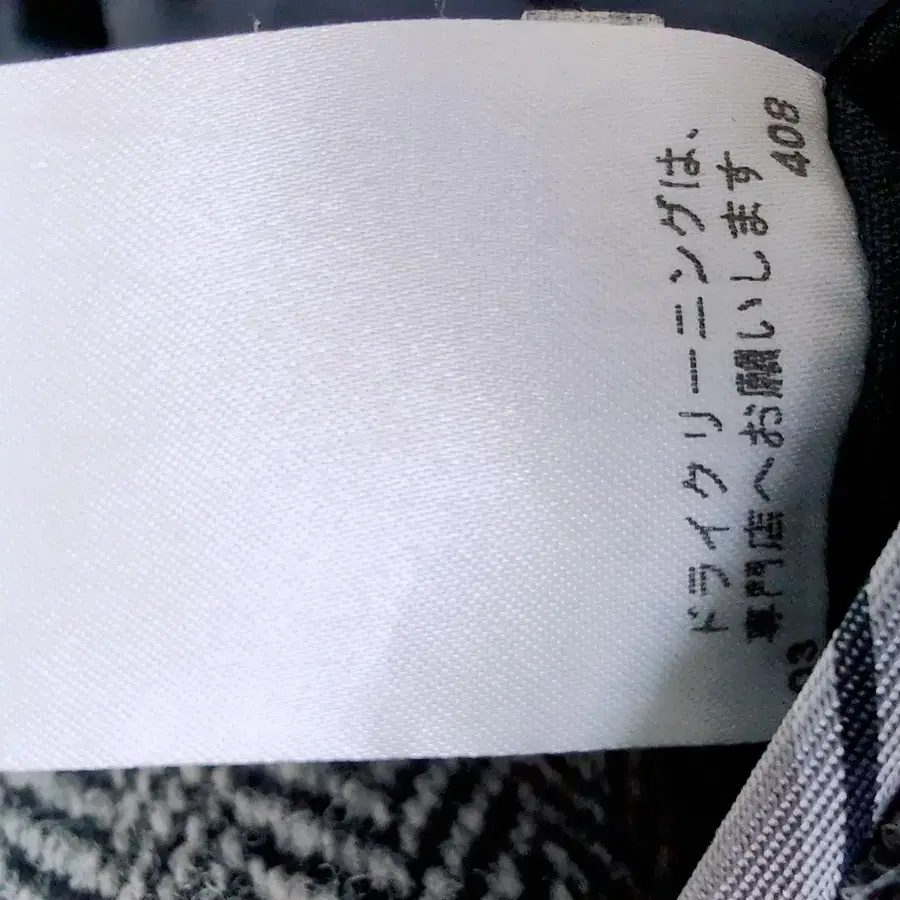 ドライクリーニングは、
専門店へお願いします
03 408